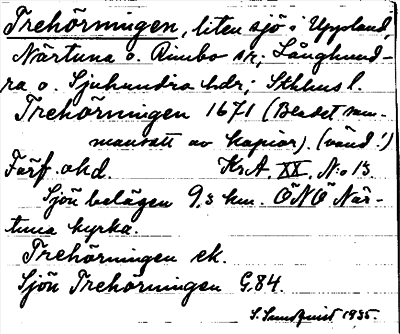 Trehörningen, liten sjö i Uppland,
Närtuna o. Rimbo snr; Långhund-
ra o. Sjuhundra hdr; Sthlms l.
Trehörningen 1671 (Bladet sam-
mansatt av kopior). (vänd!)
Förf. okd. Kr.A. XX. N:o 13
Sjön belägen 9,3 km. ÖNÖ När-
tuna kyrka.
Trehörningen ek.
Sjön Trehörningen G.84.
S. Sundquist 1935.